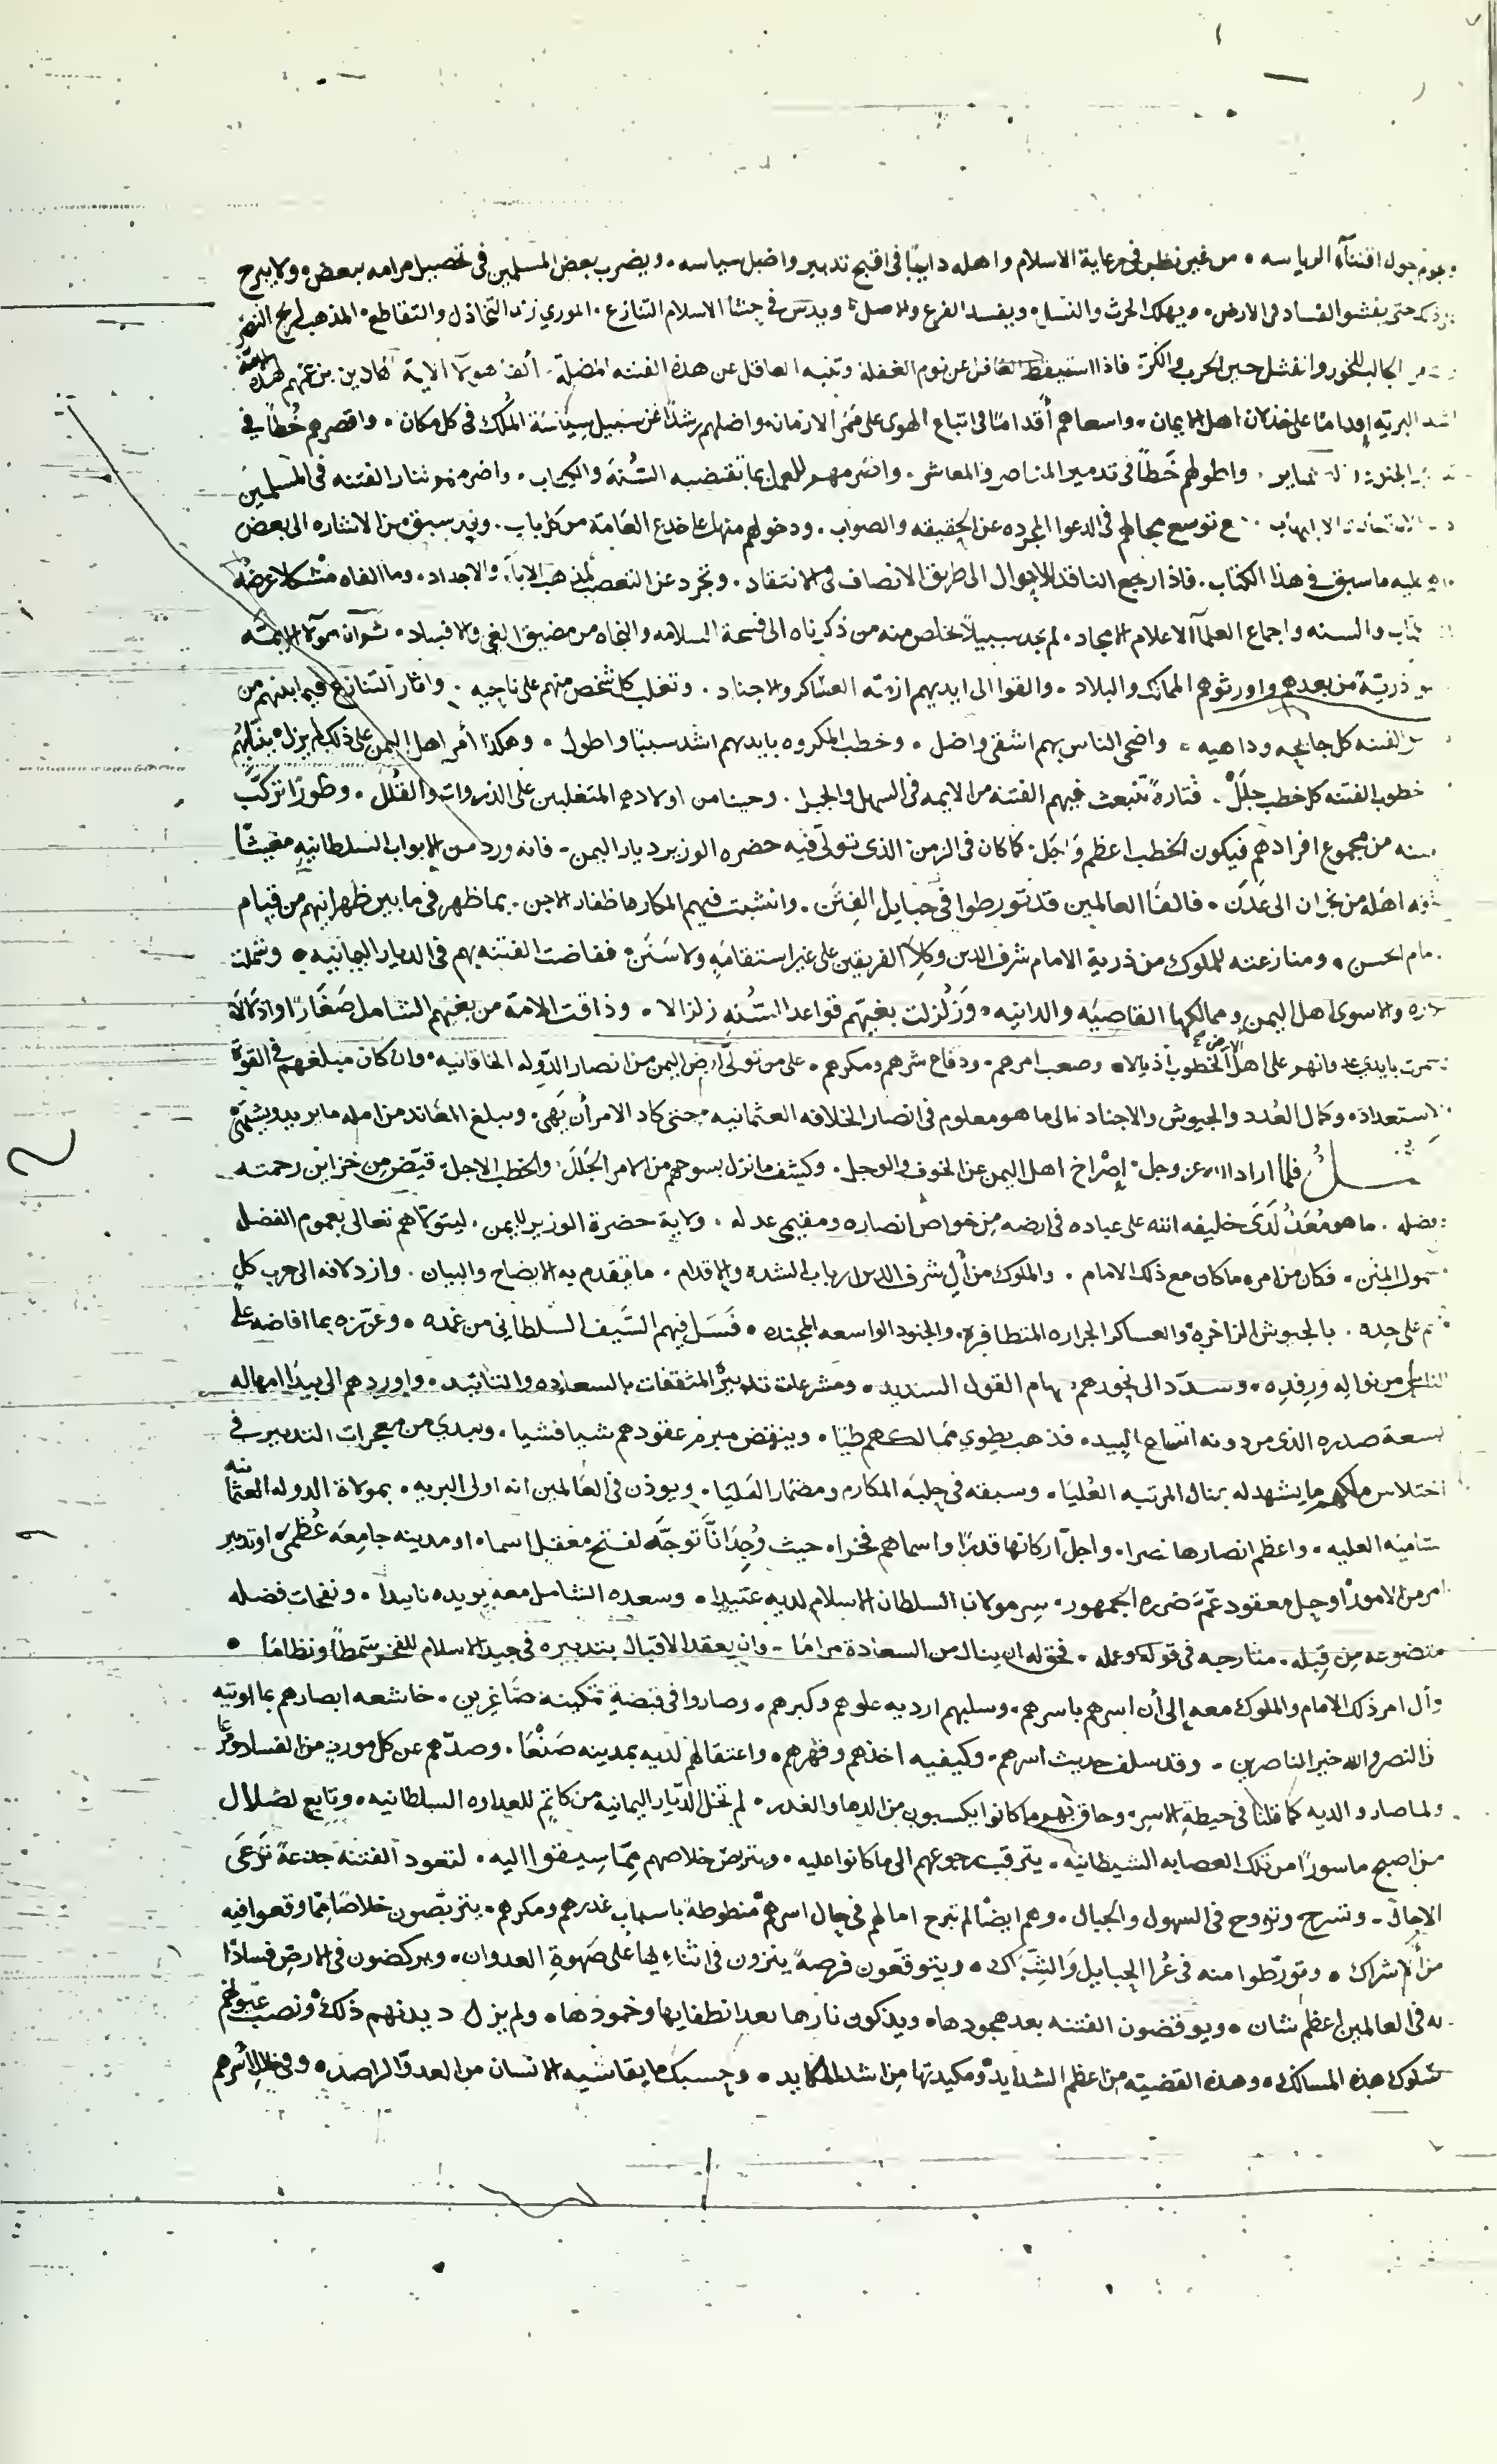 ويحوم حول اقتناء الرياسه ٠ من غير نظر في رعاية الاسلام واهله دايبًا في اقبح تدبير واضل سياسه ٠ ويضرب بعض المسلمين في تحصيل مرامه ببعض ٠ ولا يبرح
ذلك حتى يفشوا الفساد في الارض ٠ ويهلك الحرث والنسل ٠ ويفسد الفرع والاصل ٠ ويدس في حشا الاسلام التنازع ٠ الموري زند التخاذل والتقاطع ٠ المذهب لريح النصر
الجالب للخور والفشل حين الحرب والكر ٠ فاذا استيقظ الغافل عن نوم الغفلة وتنبه العاقل عن هذه الفتنه المضلة ٠ الف هولاء الايمة
اشد البريه اقدامًا على خذلان اهل الايمان ٠ واسعاهم أقدامًا في اتباع الهوى على ممر الازمان ٠ واضلهم رشدًا عن سبيل سياسة الملك في كل مكان ٠ واقصرهم خُطًا في
واطولهم خَطًا في تدمير المناصر والمعاشر ٠ واتركهم للعمل بما تقتضيه السُّنة والكتاب ٠ واضرمهم لنار الفتنه في المسلمين
مع توسيع مجالهم في الدعوا المجرده عن الحقيقه والصواب ٠ ودخولهم منها على خدع العامة من كل باب ٠ وقد سبق من الاشاره الى بعض
عليه ما سبق في هذا الكتاب ٠ فاذا رجع الناقد للاحوال الى طريق الانصاف في الانتقاد ٠ وتجرد عن التعصب لمذهب الاباء والاجداد ٠ وما الفاه مشكلا عرضه
الكتاب والسنه واجماع العلمآ الاعلام الامجاد ٠ لم يجد سبيلاً لخلص منه من ذكرناه الى فسحة السلامه والنجاه من مضيق الغي والافساد ٠ ثم ان هولاء الايمه
ذريّة من بعدهم واورثوهم الممالك والبلاد ٠ والقوا الى ايديهم ازمّه العساكر والاجناد ٠ وتغلب كل شخص منهم على ناحيه ٠ واثار التنازع فيما بينهم من
الفتنه كل جايحه وداهيه ٠ واضحى الناس بهم اشقى واضل ٠ وخطب المكروه بايديهم اشد سببًا واطول ٠ وهكذا أمر اهل اليمن على ذلك لم يزل ينالهم
خطوب الفتنه كل خطب جلَلْ ٠ فتارةً تنبعث فيهم الفتنه من الايمه في السهل والجبل ٠ وحينا من اولادهم المتغلبين على الذروات والقُلل ٠ وطورًا تركب
من مجموع افرادهم فيكون الخطب اعظم واجل ٠ كما كان في الزمن الذي تولّى فيه حضره الوزير ديار اليمن ٠ فانه ورد من الابواب السلطانيه مغيثًا
اهله من نجران الى عَدَن ٠ فالفا العالمين قد تورطوا في حبايل الفِتَن ٠ وانشبت فيهم المكاره اظفار الاحن ٠ بما ظهر في ما بين ظهرانيهم من قيام
الامام الحسن ٠ ومنازعته للملوك من ذرية الامام شرف الدين وكِلا الفريقين على غير استقامةٍ ولا سَنَن ٠ ففاضت الفتنه بهم في الديار اليمانيه ٠ وشملت
اهل اليمن وممالكها القاصيه والدانيه ٠ وزُلزلت بغيّهم قواعد السُّنه زلزالا ٠ وذاقت الامة من بغيهم الشامل صَغارًا واذلالا
على اهل الارض الخطوب اذيالا ٠ وصعب امرهم ٠ ودفاع شرهم ومكرهم ٠ على من تولّى ارض اليمن من انصار الدوله الخاقانيه ٠ وان كان مبلغهم في القوة
الاستعداد ٠ وكمال العُدد والجيوش والاجناد ٠ الى ما هو معلوم في انصار الخلافه العثمانيه ٠ حتى كاد الامر أن يَهي ٠ ويبلغ المعاند من امله ما يريد ويشتهي
فلما اراد الله عز وجل ٠ إصْراخ اهل اليمن عن الخوف والوجل ٠ وكشف ما نزل بسوحهم من الامر الجَلَل ٠ والخطب الاجل ٠ قيّض من خزاين رحمته
وفضله ٠ ما هو مُعَدٌّ لَدَى خليفه الله على عباده في ارضه من خواص انصاره ومقيمي عدله ٠ ولاية حضرة الوزير لليمن ٠ ليتولاهم تعالى بعموم الفضل
وشمول المنن ٠ فكان من امره ما كان مع ذلك الامام ٠ والملوك من آل شرف الدين ارباب الشدة والاقدام ٠ ما تقدم به الايضاح والبيان ٠ وازدلافه الى حرب كلٍ
منهم على حِده ٠ بالجيوش الزاخرة ٠ والعساكر الجراره المتظافرة ٠ والجنود الواسعه المجنده ٠ فَسَل فيهم السَّيف السلطاني من غمده ٠ وعزّزه بما افاضه على
الناس من نواله ورِفدِه ٠ وسدّد الى نحورهم سهام القول السديد ٠ ومشرعات تدبيره المثقفات بالسعاده والتاييد ٠ واوردهم الى بيدا امهاله
بسعة صدره الذي من دونه اتساع البيد ٠ فذهب يطوي ممالكهم طيّا ٠ وينقض مبرم عقودهم شيا فشيا ٠ ويبدي من معجزات التدبير في
اختلاس ملكهم ما يشهد له بمنال المرتبه العُليَا ٠ وسبقه في حلبَة المكارم ومضمار العَليَا ٠ ويوذن في العالمين انه اولى البريه ٠ بموالاة الدوله العثمانيه
الساميه العليه ٠ واعظم انصارها نصرا ٠ واجلّ اركانها قدرًا واسماهم فخرا ٠ حيث وُجد انّا توجّه لفتح معقل اسما ٠ او مدينه جامعَه عُظمى ٠ او تدبير
امر من الامور او حل معقود عمّ ضرره الجمهور ٠ سِر مولانا السلطان الاسلام لديه عتيدا ٠ وسعده الشامل معه يويده تاييدا ٠ ونفحات فضله
متضوعه مِن قِبله ٠ متارجه في قوله وعمله ٠ فحق له ان ينال من السعادة مرامًا ٠ وان يعقد الاقبال بتدبيره في جيد الاسلام للفخر سمطًا ونظامًا ٠
وآل امر ذلك الامام والملوك معه إلى أن اسرهم باسرهم ٠ وسلبهم ارديه علوهم وكبرهم ٠ وصاروا في قبضة تمكينه صَاغِرين ٠ خاشعه ابصارهم بما اوتيه
من النصر والله خير الناصرين ٠ وقد سلف حديث اسرهم ٠ وكيفيه اخذهم وقهرهم ٠ واعتقالهم لديه بمدينه صَنْعَا ٠ وصدّهم عن كل موردٍ من الفساد ومرعا
ولما صاروا لديه كما قلنا في حيطة الاسر ٠ وحاق بهم ما كانوا يكسبون من الدها والغدر ٠ لم تخل الديار اليمانية من كاتمٍ للعداوه السلطانيه ٠ وتابع لضلال
من اصبح ماسورًا من تلك العصابه الشيطانيه ٠ يترقب رجوعهم الى ما كانوا عليه ٠ ويتربص خلاصهم مما سيقوا اليه ٠ لتعود الفتنه جذعةً ترعَى
الاجال ٠ وتسرح وتروح في السهول والجبال ٠ وهم ايضًا لم تبرح امالهم في حال اسرهم منطوطة باسباب غدرهم ومكرهم ٠ يتربّصون خلاصًا مما وقعوا فيه
من الاشراك ٠ وتورّطوا منه في عُرا الحبايل والشِّباك ٠ ويتوقعون فرصةً ينزون في اثنائها على صَهوة العدوان ٠ ويركضون في الارض فسادًا
له في العالمين اعظم شان ٠ ويوقضون الفتنه بعد هجودها ٠ ويذكون نارها بعد انطفايها وخمودها ٠ ولم يزل ديدنهم ذلك ٠ ونصب عيونهم
سلوك هذه المسالك ٠ وهذه القضيّه من اعظم الشدايد ٠ ومكيدتها من اشد المكايد ٠ وحسبك ما يقاسيه الانسان من العدوّ الراصد ٠ وفي خلال اسرهم